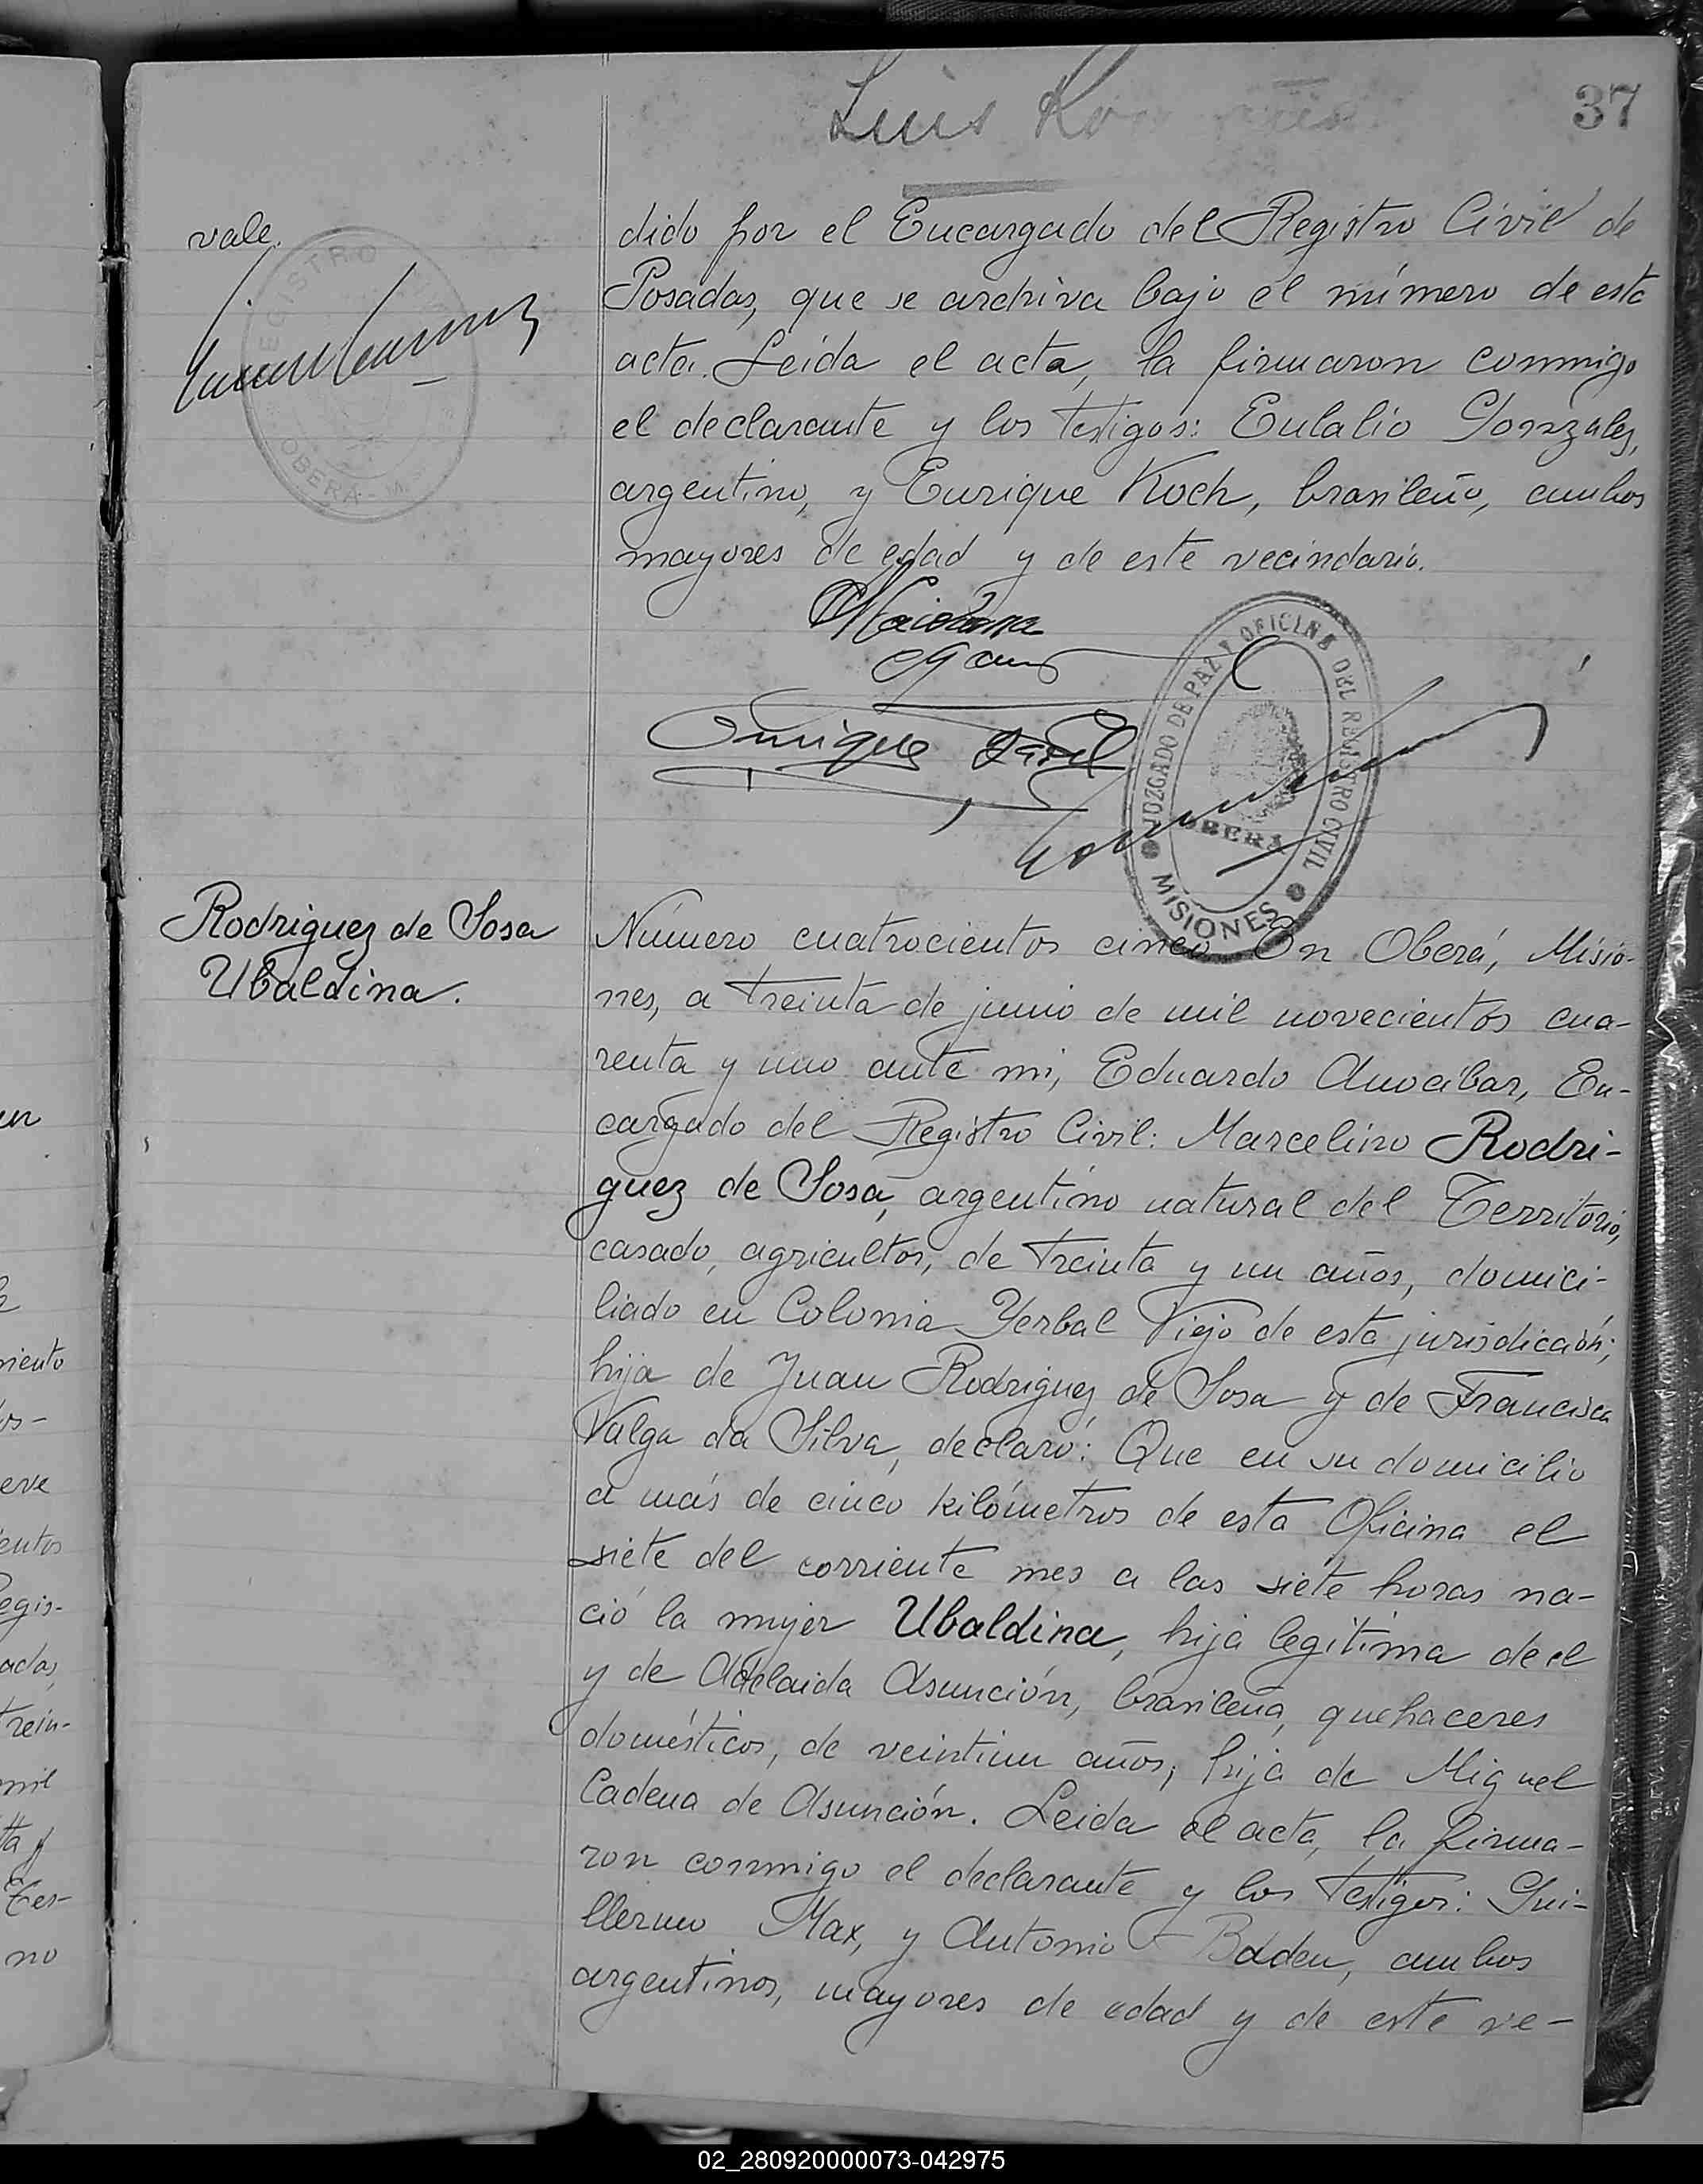 Luis
37
vale.
REGISTRO
OBERÁ - M.
dido por el Encargado del Registro Civil de
Posadas, que se archiva bajo el número de esta
acta. Leída el acta, la firmaron conmigo
el declarante y los testigos: Eulalio Gonzalez,
argentino, y Enrique Koch, brasileño, ambos
mayores de edad y de este vecindario.
Enrique
JUZGADO DE PAZ Y OFICINA DEL REGISTRO CIVIL
OBERÁ
MISIONES
Rodriguez de Sosa
Ubaldina.
Número cuatrocientos cinco En Oberá, Misio-
nes, a treinta de junio de mil novecientos cua-
renta y uno ante mi, Eduardo Anocibar, En-
cargado del Registro Civil: Marcelino Rodri-
guez de Sosa, argentino natural del Territorio,
casado, agricultor, de treinta y un años, domici-
liado en Colonia Yerbal Viejo de esta jurisdicción;
hija de Juan Rodriguez de Sosa y de Francisca
Valga da Silva, declaró: Que en su domicilio
a más de cinco kilómetros de esta Oficina el
siete del corriente mes a las siete horas na-
ció la mujer Ubaldina, hija legítima de el
y de Adelaida Asunción, brasileña, quehaceres
domésticos, de veintiun años, hija de Miguel
Cadena de Asunción. Leida el acta, la firma-
ron conmigo el declarante y los testigos: Gui-
llermo Max, y Antonio Badden, ambos
argentinos, mayores de edad y de este ve-
un
niento
os-
eve
entos
Regis-
adas,
trein-
mil
tta y
Tes-
no
02_280920000073-042975